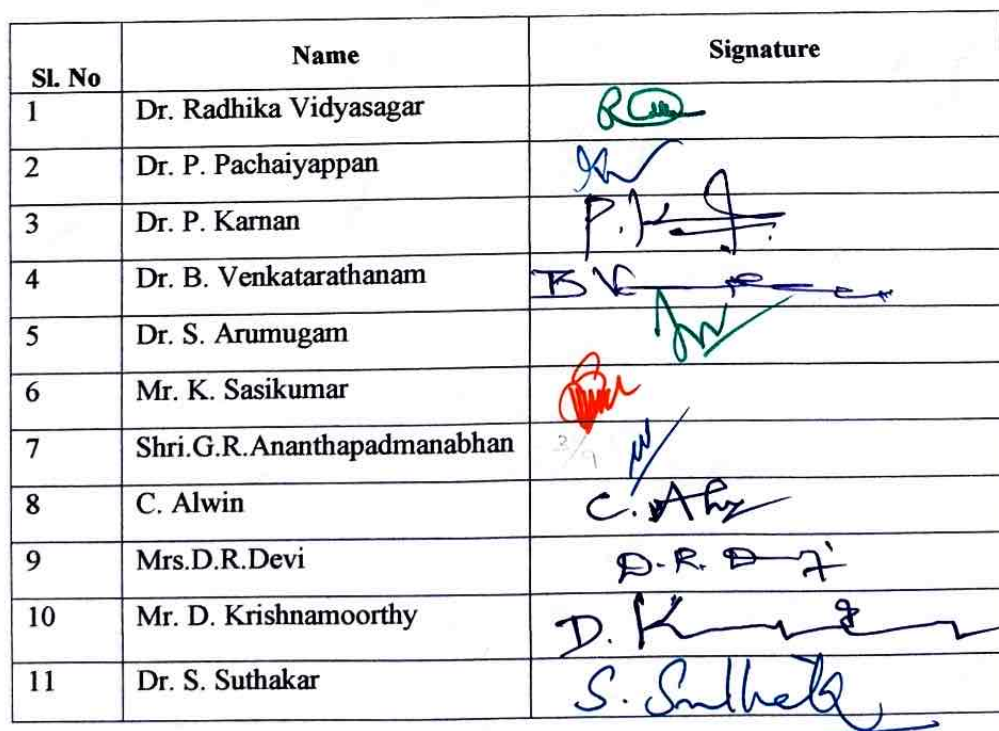 Sl. No Name Signature
1 Dr. Radhika Vidyasagar
2 Dr. P. Pachaiyappan
3 Dr. P. Karnan P. K
4 Dr. B. Venkatarathanam B V
5 Dr. S. Arumugam
6 Mr. K. Sasikumar
7 Shri.G.R.Ananthapadmanabhan
8 C. Alwin C.
9 Mrs.D.R.Devi D.R. D
10 Mr. D. Krishnamoorthy D. K
11 Dr. S. Suthakar S.